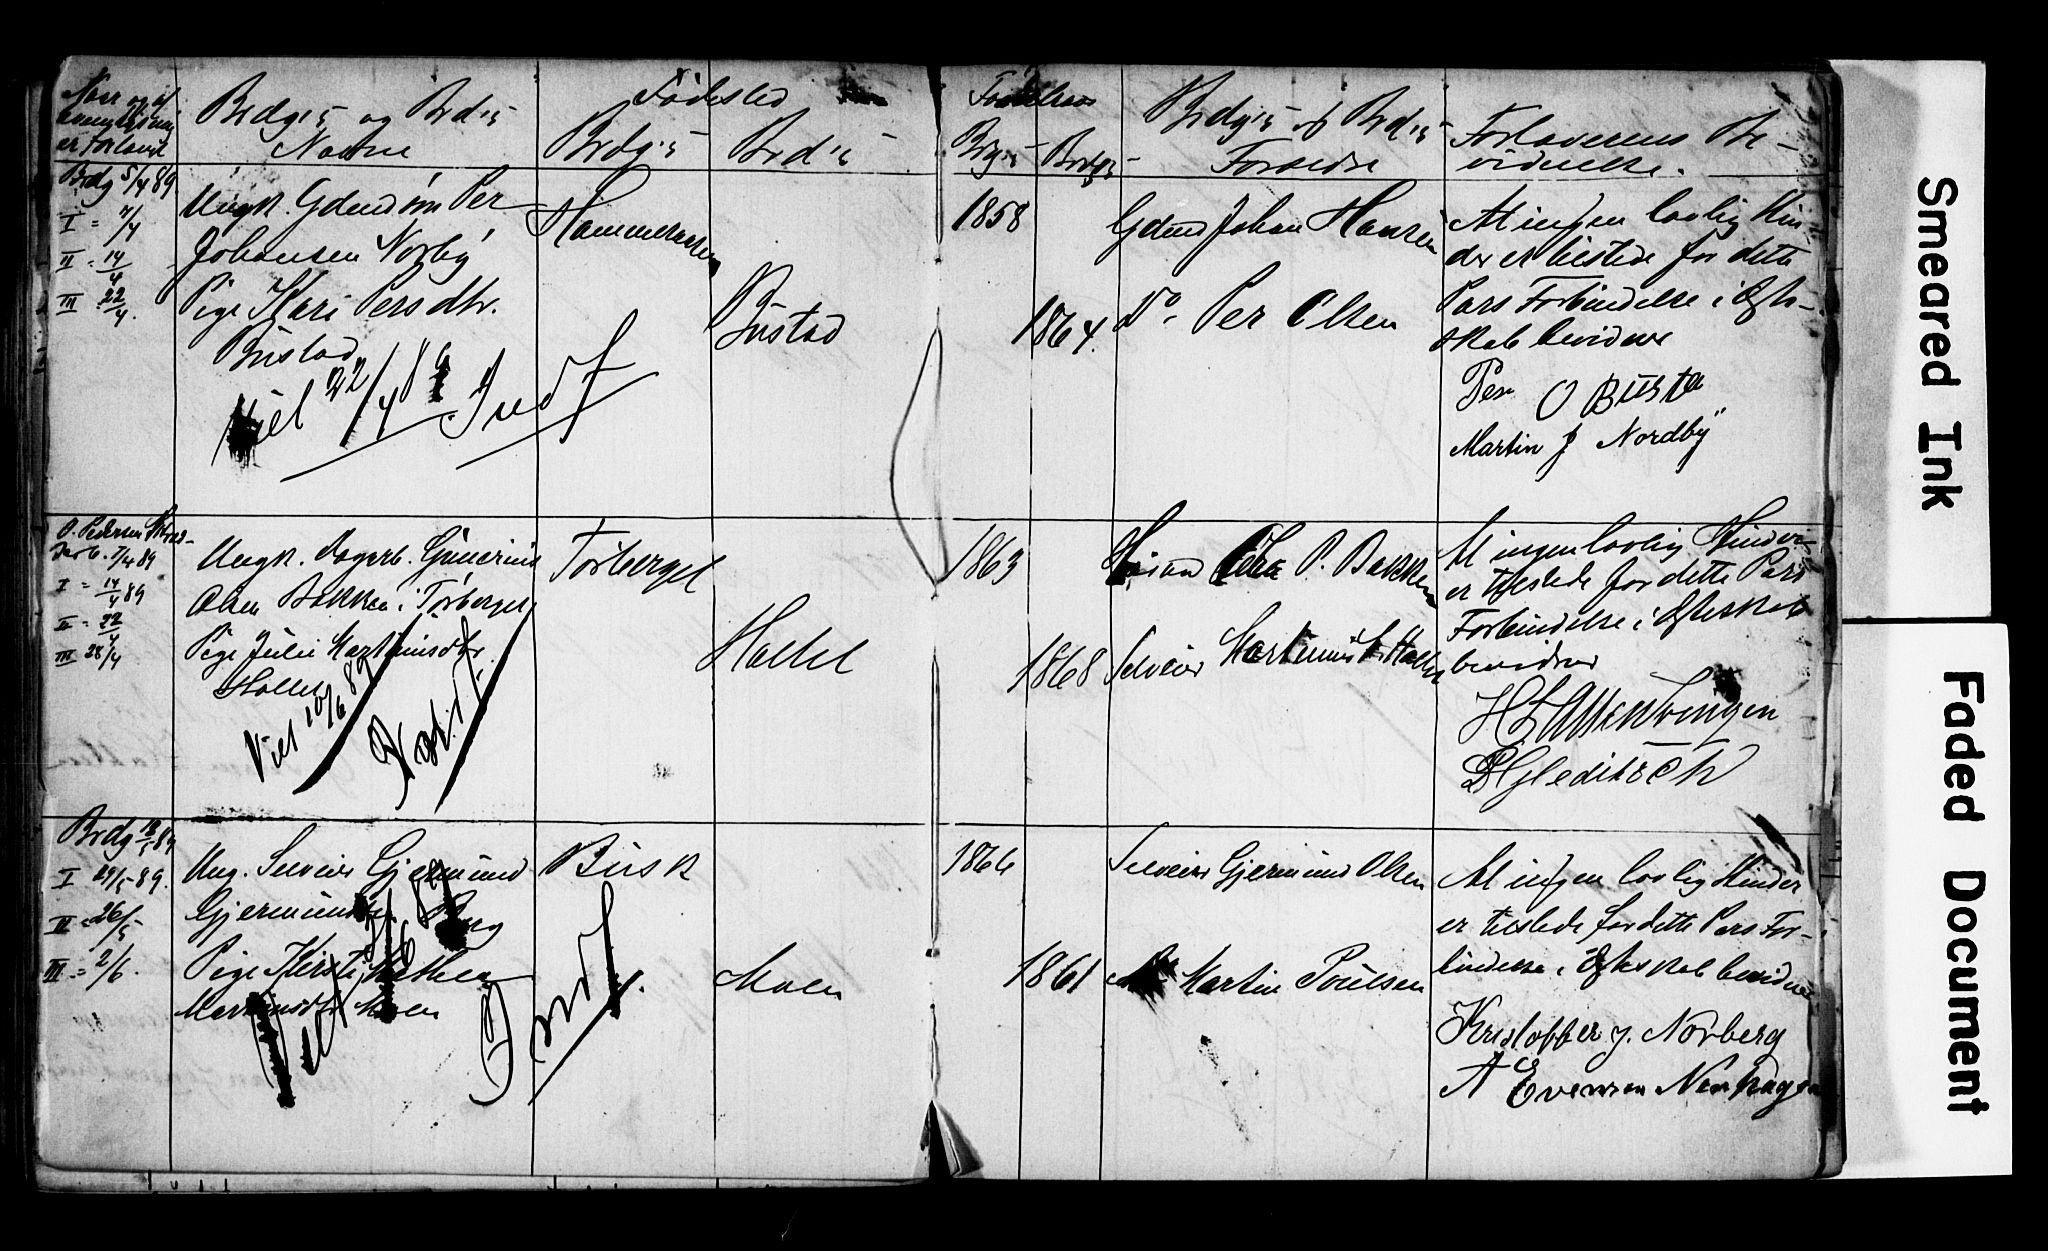 Naar og af
er Forlovet
Brdgs og Brds
Navne
Fødested
Brdgs
Brds
Fødselsaar
Brdgs og Brds
Forældre
Forloverens Be-
vidnelse.
Brdg 5/4 89
I = 7/4
II = 14/4
III 22/4.
Ungk. Gdmdsøn Per
Johansen Norby
Pige Kari Persdtr.
Bustad
Viet 22/4 89. Indf
Hammersess
Bustad
1858
1864.
Gdmd Johan Hansen
Do. Per Olsen
At ingen lovlig Hin-
der er tilstede for dette
Pars Forbindelse i Ægte-
skab bevidner
Per O Busta
Martin J Nordby
O. Pedersen
7/4 89
I = 14/4 89
II = 22/4
III 28/4
Ungk. Dagarb. Gunerius
Olsen Bakken i Torberget
Pige Julie Martinusdtr.
Hollet
Viet 10/6 89
Indf.
Torberget
Hollet
1863
1868
Ole P. Bakken
Selveier Martinus
At ingen lovlig Hinder
er tilstede for dette Pars
Forbindelse i Ægteskab
bevidner
Gleditsch
Brdg 18/5 89
I 19/5 89.
II = 26/5
III = 2/6.
Ung. Selveier Gjermund
Gjermundsen
Pige Kirsti Mathea
Martinsdtr Moen
Viet
Indf.
Busk
Moen
1866
1861
Selveier Gjermund Olsen
Martin Poulsen
At ingen lovlig Hinder
er tilstede for dette Pars For-
bindelse i Ægteskab bevidner
Kristoffer J. Norberg
A Evensen
Smeared Ink
Faded Document